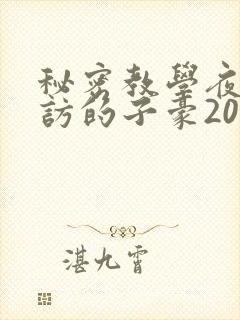 秘密教學夜
訪的子豪20
湛九霄